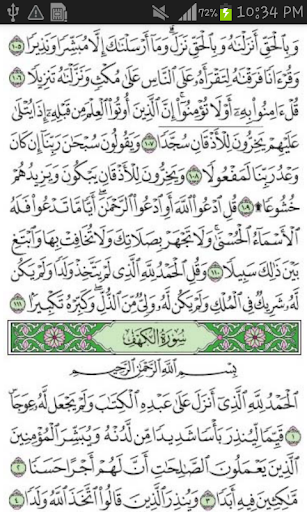 72% 10:34 PM
وَبِالْحَقِّ أَنزَلْنَاهُ وَبِالْحَقِّ نَزَلَ ۗ وَمَا أَرْسَلْنَاكَ إِلَّا مُبَشِّرًا وَنَذِيرًا
١٠٥ وَقُرْآنًا فَرَقْنَاهُ لِتَقْرَأَهُ عَلَى النَّاسِ عَلَىٰ مُكْثٍ وَنَزَّلْنَاهُ تَنزِيلًا
١٠٦ قُلْ آمِنُوا بِهِ أَوْ لَا تُؤْمِنُوا ۚ إِنَّ الَّذِينَ أُوتُوا الْعِلْمَ مِن قَبْلِهِ إِذَا يُتْلَىٰ
عَلَيْهِمْ يَخِرُّونَ لِلْأَذْقَانِ سُجَّدًا ١٠٧ وَيَقُولُونَ سُبْحَانَ رَبِّنَا إِن كَانَ
وَعْدُ رَبِّنَا لَمَفْعُولًا ١٠٨ وَيَخِرُّونَ لِلْأَذْقَانِ يَبْكُونَ وَيَزِيدُهُمْ
خُشُوعًا ۩ ١٠٩ قُلِ ادْعُوا اللَّهَ أَوِ ادْعُوا الرَّحْمَٰنَ ۖ أَيًّا مَّا تَدْعُوا فَلَهُ
الْأَسْمَاءُ الْحُسْنَىٰ ۚ وَلَا تَجْهَرْ بِصَلَاتِكَ وَلَا تُخَافِتْ بِهَا وَابْتَغِ
بَيْنَ ذَٰلِكَ سَبِيلًا ١١٠ وَقُلِ الْحَمْدُ لِلَّهِ الَّذِي لَمْ يَتَّخِذْ وَلَدًا وَلَمْ يَكُن
لَّهُ شَرِيكٌ فِي الْمُلْكِ وَلَمْ يَكُن لَّهُ وَلِيٌّ مِّنَ الذُّلِّ ۖ وَكَبِّرْهُ تَكْبِيرًا ١١١
سُورَةُ الْكَهْفِ
بِسْمِ اللَّهِ الرَّحْمَٰنِ الرَّحِيمِ
الْحَمْدُ لِلَّهِ الَّذِي أَنزَلَ عَلَىٰ عَبْدِهِ الْكِتَابَ وَلَمْ يَجْعَل لَّهُ عِوَجًا
١ قَيِّمًا لِّيُنذِرَ بَأْسًا شَدِيدًا مِّن لَّدُنْهُ وَيُبَشِّرَ الْمُؤْمِنِينَ
الَّذِينَ يَعْمَلُونَ الصَّالِحَاتِ أَنَّ لَهُمْ أَجْرًا حَسَنًا
٢ مَّاكِثِينَ فِيهِ أَبَدًا ٣ وَيُنذِرَ الَّذِينَ قَالُوا اتَّخَذَ اللَّهُ وَلَدًا ٤